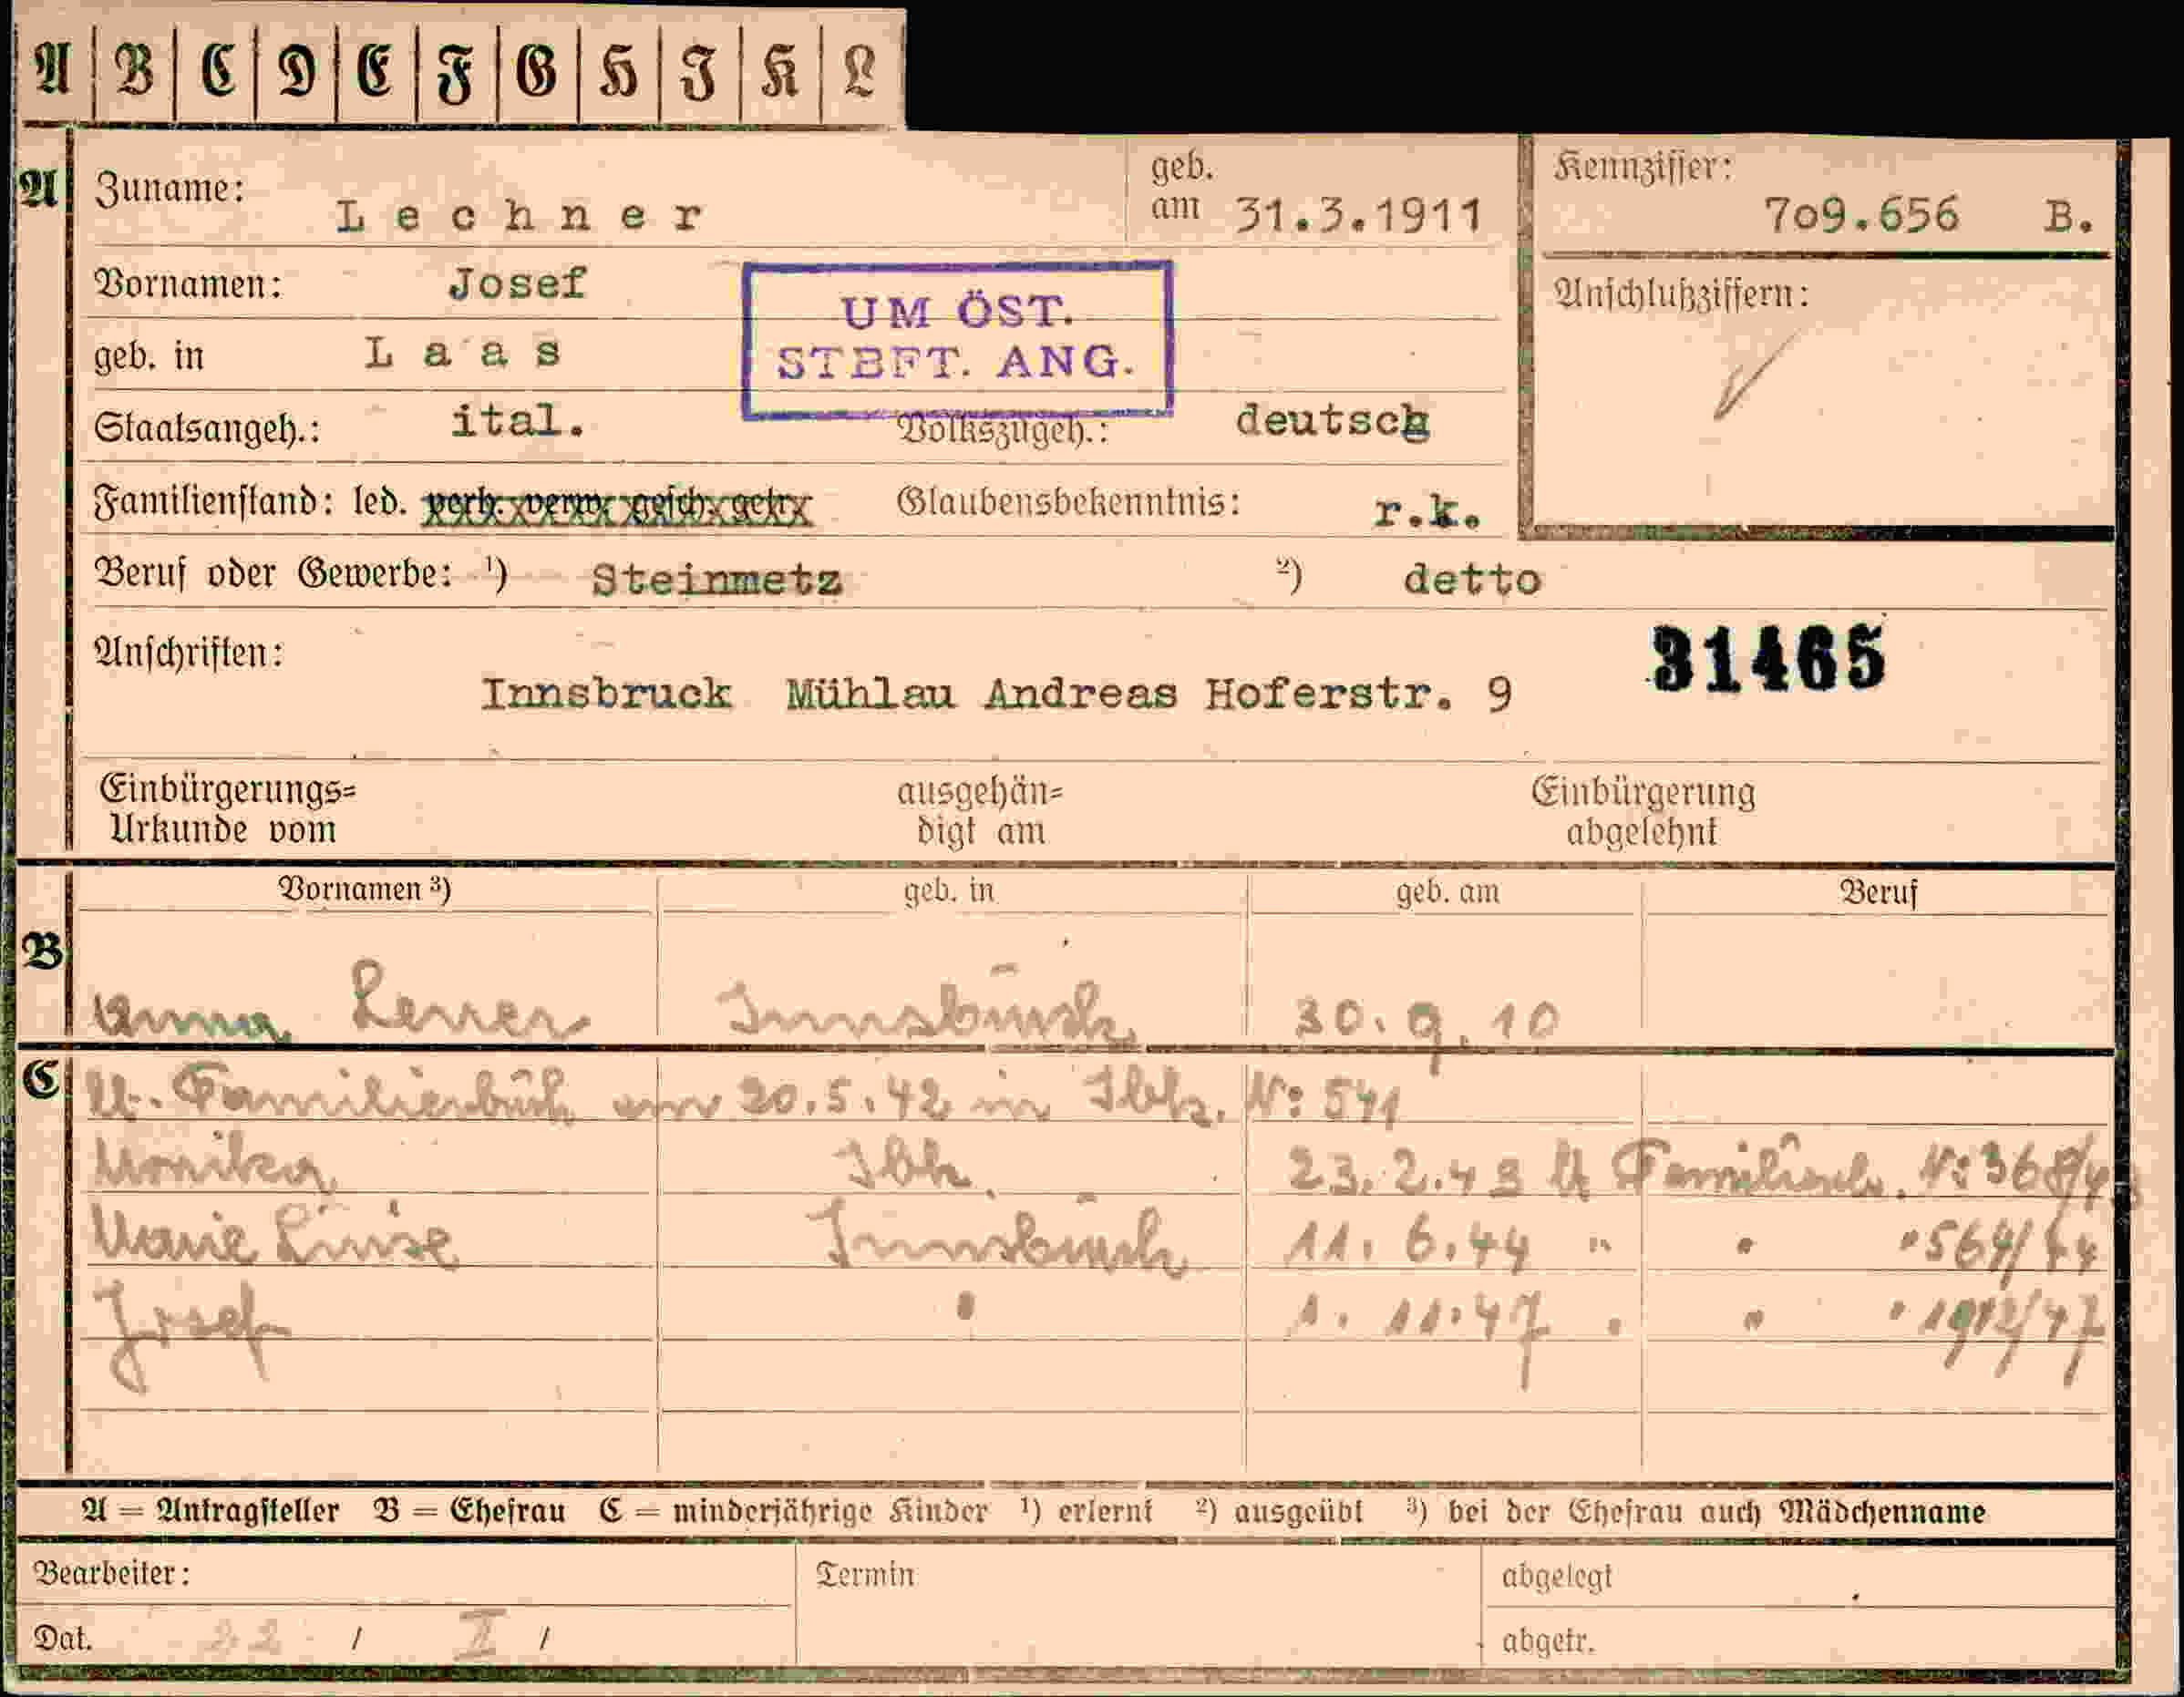 A B C D E F G H I K L
A Zuname: Lechner geb. am 31.3.1911 Kennziffer: 709.656 B.
Vornamen: Josef UM ÖST. STBFT. ANG. Anschlußziffern:
geb. in Laas
Staatsangeh.: ital. Volkszugeh.: deutsch
Familienstand: led. verh. verw. gesch. getr. Glaubensbekenntnis: r.k.
Beruf oder Gewerbe: ¹) Steinmetz ²) detto
Anschriften: 31465
Innsbruck Mühlau Andreas Hoferstr. 9
Einbürgerungs= ausgehän= Einbürgerung
Urkunde vom digt am abgelehnt
Vornamen ³) geb. in geb. am Beruf
B
Anna Innsbruck 30.9.10
C lt. Familienbuch vom 20.5.42 in Ibk. Nr 541
Monika Ibk. 23.2.43 lt Familienb. Nr 368/43
Marie Luise Innsbruck 11.6.44 " " " 564/44
Josef " 1.11.47 " " " 1912/47
A = Antragsteller B = Ehefrau C = minderjährige Kinder ¹) erlernt ²) ausgeübt ³) bei der Ehefrau auch Mädchenname
Bearbeiter: Termin abgelegt
Dat. 22 / I / abgetr.